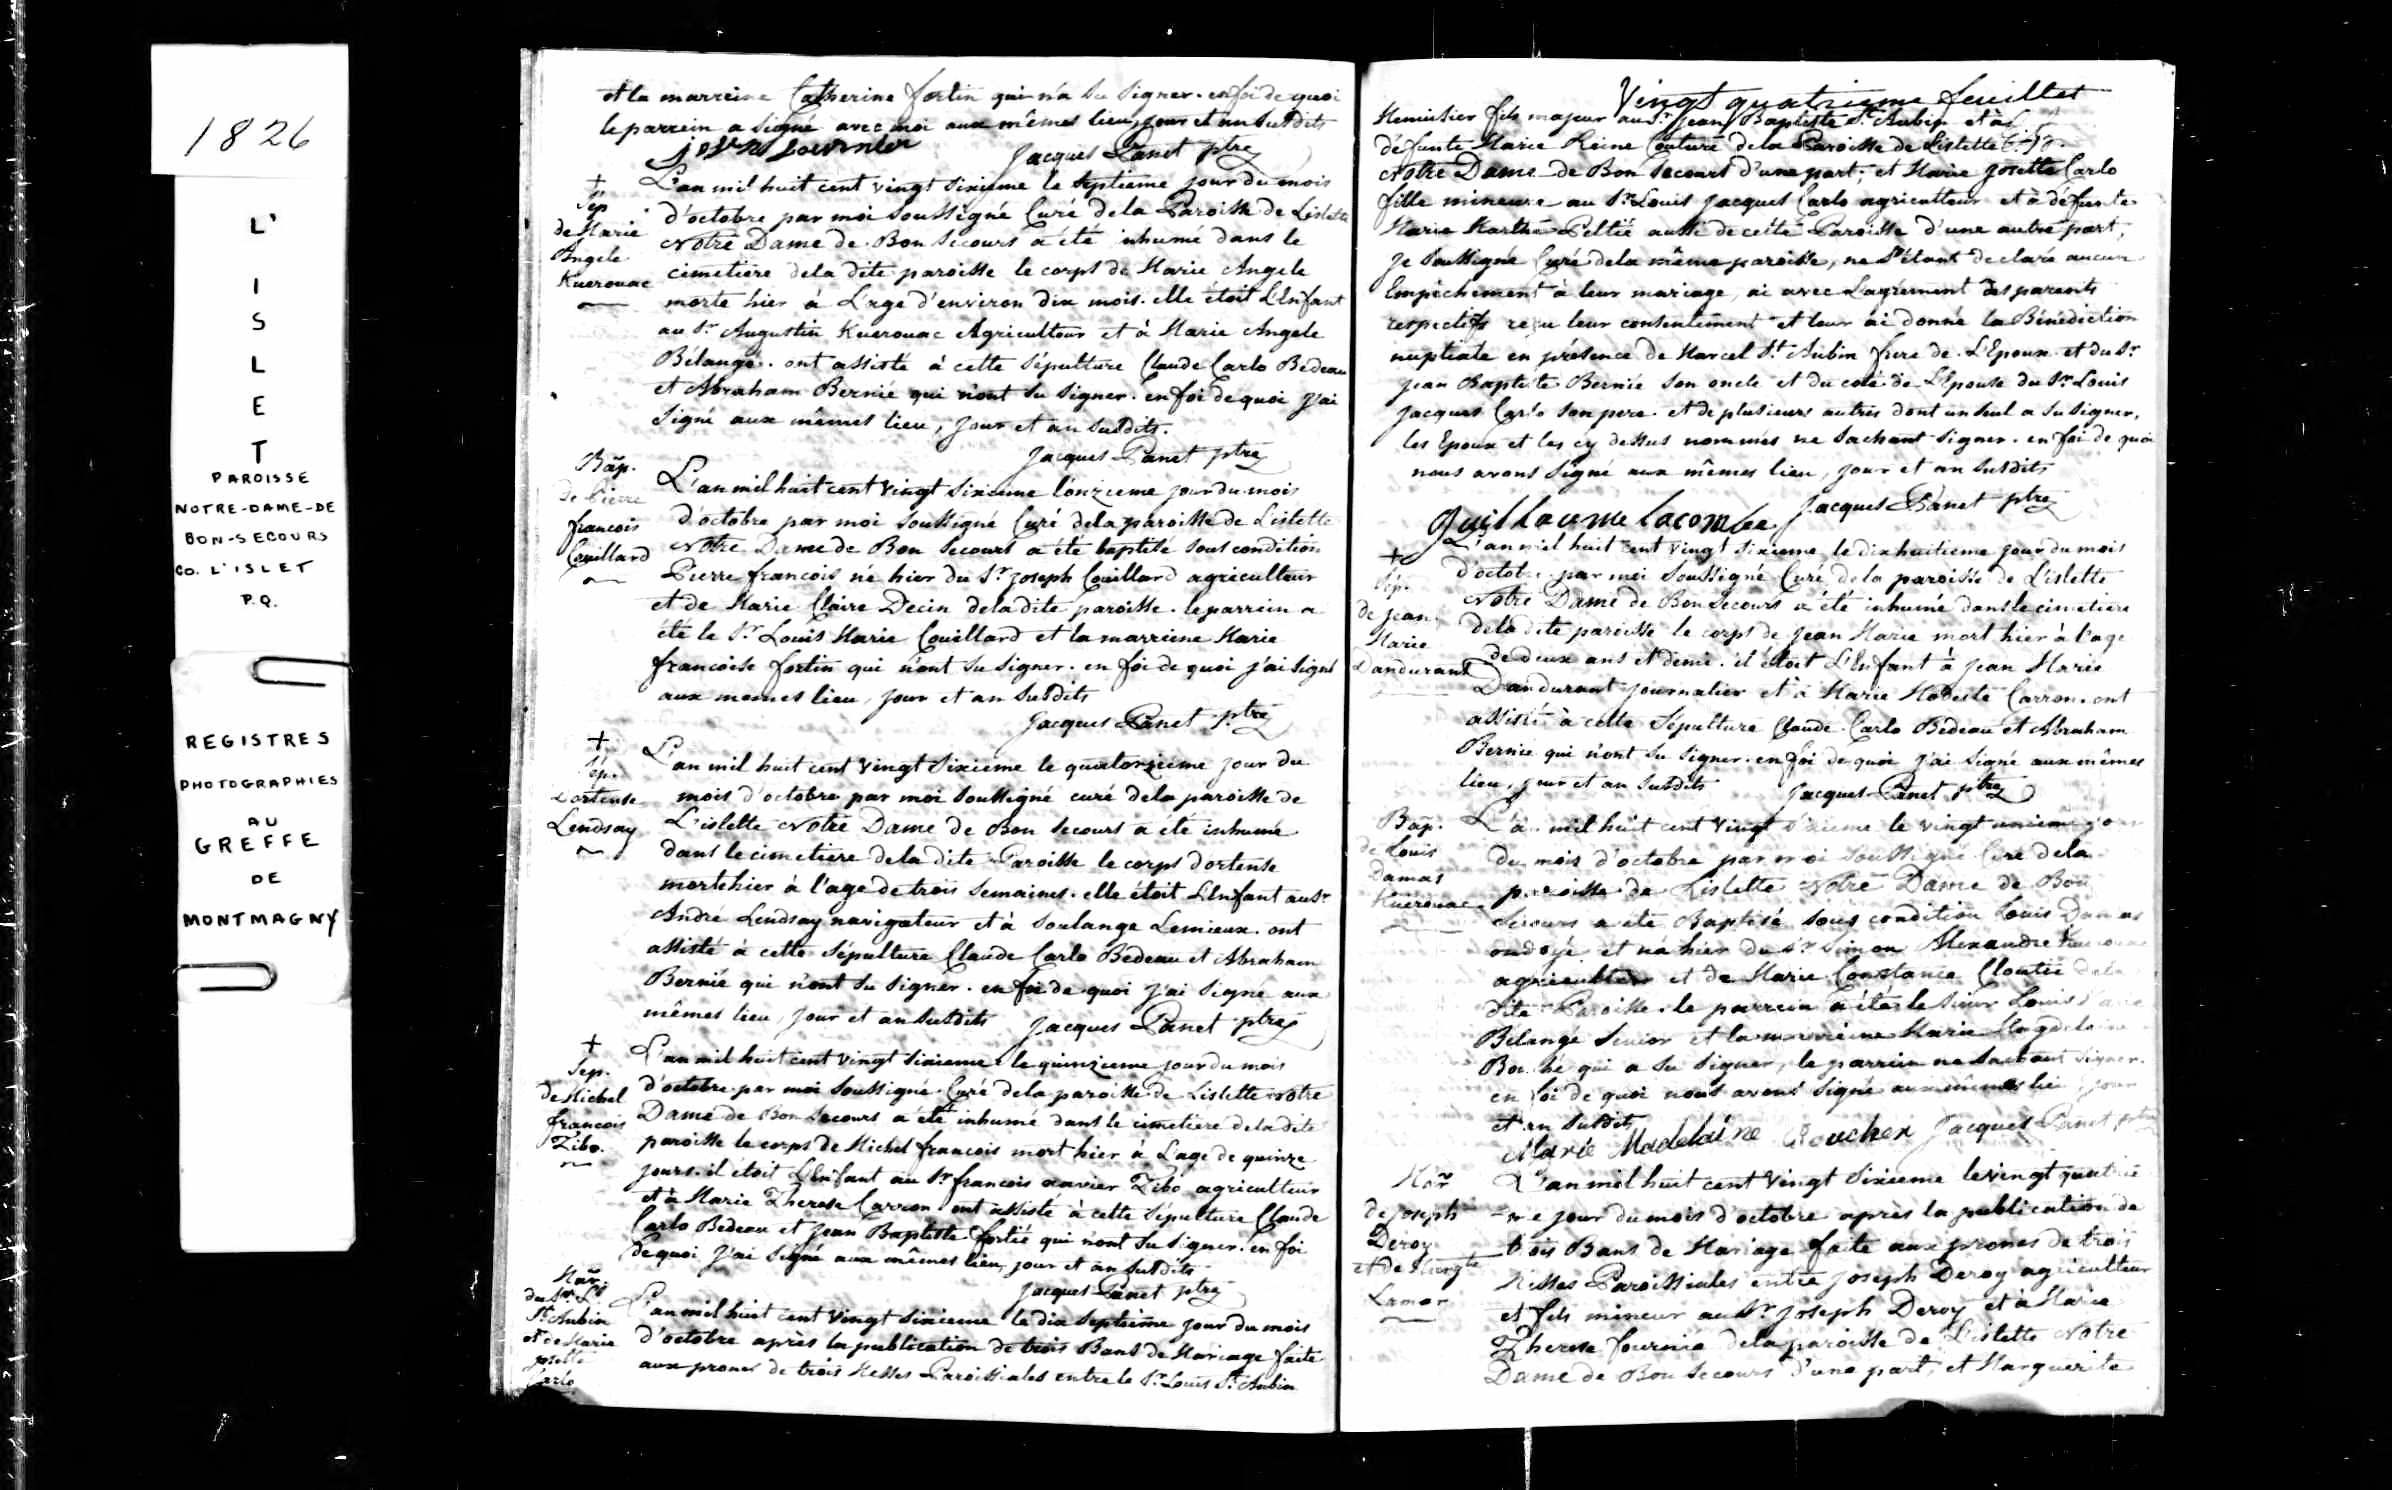 1826
L'
I
S
L
E
T
PAROISSE
NOTRE-DAME-DE
BON-SECOURS
CO. L'ISLET
P.Q.
REGISTRES
PHOTOGRAPHIES
AU
GREFFE
DE
MONTMAGNY
et la marreine Catherine fortin qui n'a su signer. en foi de quoi
le parrein a signé avec moi aux mêmes lieu, jour et an susdits
Jacques Panet ptre
+
Sep
de Marie
Angele
Kuerouac
L'an mil huit cent vingt sixieme le septieme jour du mois
d'octobre par moi soussigné Curé dela Paroisse de Lislette
Notre Dame de Bon Secours a été inhumé dans le
cimetiere dela dite paroisse le corps de Marie Angele
morte hier à L'age d'environ dix mois. elle étoit L'Enfant
au Sr Augustin Kuerouac Agriculteur et à Marie Angele
Bélangé. ont assisté à cette sépulture Claude Carlo Bedeau
et Abraham Bernié qui n'ont su signer. en foi de quoi j'ai
signé aux mêmes lieu, jour et an susdits.
Jacques Panet ptre
Bap.
de Pierre
francois
Couillard
L'an mil huit cent vingt sixieme l'onzieme jour du mois
d'octobre par moi soussigné Curé dela paroisse de Lislette
Notre Dame de Bon Secours a été baptisé sous condition
Pierre francois né hier du Sr joseph Couillard agriculteur
et de Marie Claire Decin dela dite paroisse. le parrein a
été le Sr Louis Marie Couillard et la marreine Marie
francoise fortin qui n'ont su signer. en foi de quoi j'ai signé
aux memes lieu, jour et an susdits
Jacques Panet ptre
+
Sép.
Dortense
Lendsay
L'an mil huit cent vingt sixieme le quatorzieme jour du
mois d'octobre par moi soussigné curé dela paroisse de
L'islette Notre Dame de Bon Secours a été inhumé
dans le cimetiere dela dite Paroisse le corps d'ortense
morte hier à l'age de trois semaines. elle étoit L'Enfant au Sr
André Lendsay navigateur et à Soulange Lemieux. ont
assisté à cette sépulture Claude Carlo Bedeau et Abraham
Bernié qui n'ont su signer. en foi de quoi j'ai signé aux
mêmes lieu, jour et an susdits Jacques Panet ptre
+
Sep.
de Michel
francois
Zibo.
L'an mil huit cent vingt sixieme le quinzieme jour du mois
d'octobre par moi soussigné Curé dela paroisse de Lislette Notre
Dame de Bon Secours a été inhumé dans le cimetiere dela dite
paroisse le corps de Michel francois mort hier à L'age de quinze
jours. il étoit L'Enfant au Sr francois xavier Zibo agriculteur
et à Marie Therese Carron. ont assisté à cette sépulture Claude
Carlo Bedeau et Jean Baptiste fortié qui n'ont su signer. en foi
de quoi j'ai signé aux mêmes lieu, jour et an susdits
Jacques Panet ptre
Mar.
du Sr Ls
St Aubin
et de Marie
josette
Carlo
L'an mil huit cent vingt sixieme le dix septieme jour du mois
d'octobre après la publication de trois Bans de Mariage faite
aux prones de trois Messes Paroissiales entre le Sr Louis St Aubin
Vingt quatrieme feuillet
Menuisier fils majeur au Sr jean Baptiste St Aubin et à
défunte Marie Reine Couture dela Paroisse de Lislette
Notre Dame de Bon Secours d'une part; et Marie josette Carlo
fille mineure au Sr Louis Jacques Carlo agriculteur et à défunte
Marie Marthe Peltié aussi de cette Paroisse d'une autre part,
je soussigné Curé dela même paroisse, ne s'étant declaré aucun
Empêchement à leur mariage, ai avec L'agrement des parents
respectifs reçu leur consentement et leur ai donné la Bénédiction
nuptiale en présence de Marcel St Aubin frere de L'Epoux et du Sr
jean Baptiste Bernié son oncle et du coté de L'Epouse du Sr Louis
Jacques Carlo son pere. et de plusieurs autres dont un seul a su signer,
les Epoux et les cy dessus nommés ne sachant signer. en foi de quoi
nous avons signé aux mêmes lieu, jour et an susdits
Guillaume lacombe Jacques Panet ptre
+
Sép.
de jean
Marie
Dandurant
L'an mil huit cent vingt sixieme le dix huitieme jour du mois
d'octobre par moi soussigné Curé dela paroisse de L'islette
Notre Dame de Bon Secours a été inhumé dans le cimetiere
dela dite paroisse le corps de jean Marie mort hier à l'age
de deux ans et demi. il étoit L'Enfant à jean Marie
Dandurant journalier et à Marie Modeste Carron. ont
assisté à cette sépulture Claude Carlo Bedeau et Abraham
Bernié qui n'ont su signer. en foi de quoi j'ai signé aux mêmes
lieu, jour et an susdits Jacques Panet ptre
Bap.
de Louis
damas
Kuerouac
L'an mil huit cent vingt sixieme le vingt unieme jour
du mois d'octobre par moi soussigné Curé dela
paroisse de Lislette Notre Dame de Bon
Secours a été Baptisé sous condition Louis Damas
ondoyé et né hier du Sr Simon Alexandre Kuerouac
agriculteur et de Marie Constance Cloutié dela
dite Paroisse. le parrein a été le Sieur Louis
Belangé Senior et la marreine Marie Magdelaine
Bouché qui a su signer, le parrein ne sachant signer.
en foi de quoi nous avons signé aux mêmes lieu, jour
et an susdits
Marie Madelaine Boucher Jacques Panet ptre
Mar
de joseph
Deroy
et de Margte
Lamar
L'an mil huit cent vingt sixieme le vingt quatrie
-me jour du mois d'octobre après la publication de
trois Bans de Mariage faite aux prones de trois
Messes Paroissiales entre joseph Deroy agriculteur
et fils mineur au Sr joseph Deroy et à Marie
Therese fournié dela paroisse de L'islette Notre
Dame de Bon Secours d'une part, et Marguerite